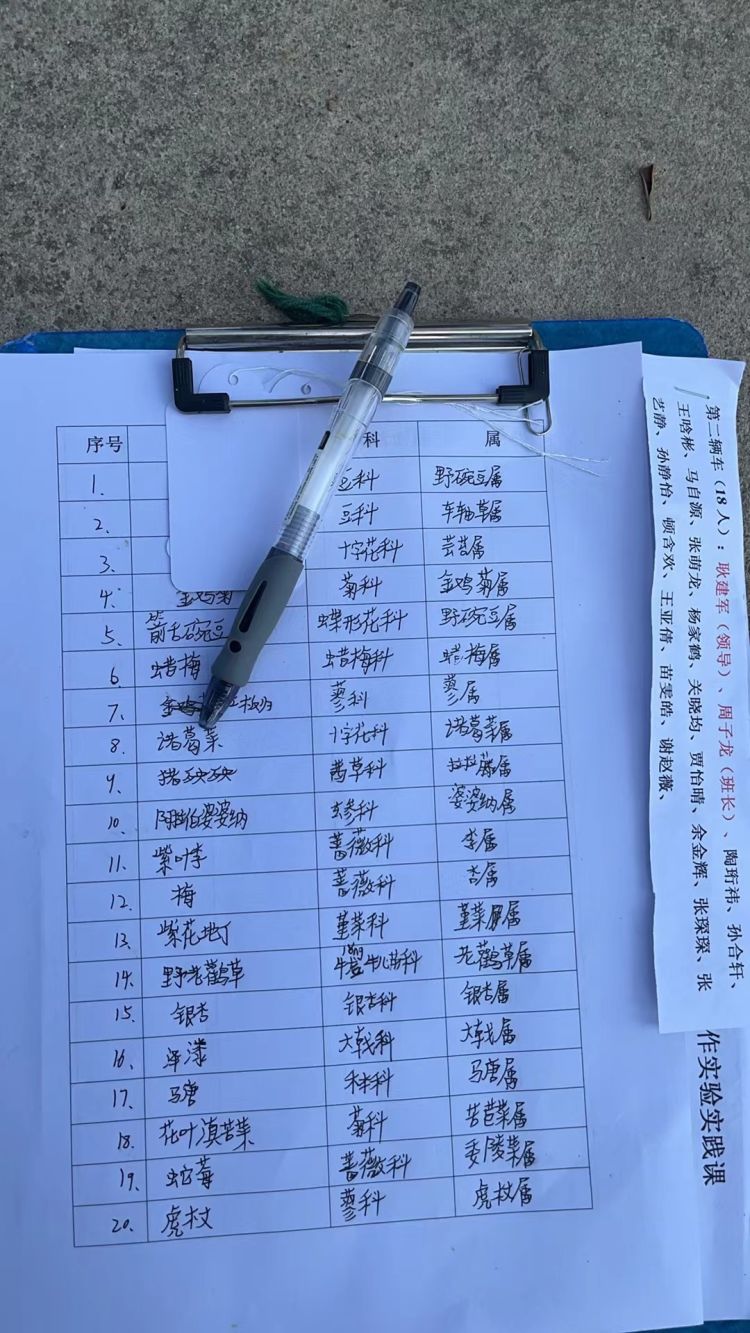 序号 科 属
1. 豆科 野碗豆属
2. 豆科 车轴草属
3. 十字花科 芸苔属
4. 金鸡菊 菊科 金鸡菊属
5. 箭舌碗豆 蝶形花科 野碗豆属
6 蜡梅 蜡梅科 蜡梅属
7. 板归 蓼科 蓼属
8. 诸葛菜 十字花科 诸葛菜属
9. 猪殃殃 茜草科 拉拉藤属
10. 阿拉伯婆婆纳 玄参科 婆婆纳属
11. 紫叶李 蔷薇科 李属
12. 梅 蔷薇科 杏属
13. 紫花地丁 堇菜科 堇菜属
14. 野老鹳草 牻牛儿苗科 老鹳草属
15. 银杏 银杏科 银杏属
16. 泽漆 大戟科 大戟属
17. 马唐 禾本科 马唐属
18. 花叶滇苦菜 菊科 苦苣菜属
19. 蛇莓 蔷薇科 委陵菜属
20. 虎杖 蓼科 虎杖属
第二辆车（18人）：耿建军（领导）、周子龙（班长）、陶珩祎、孙合轩、
王晗彬、马自源、张萌龙、杨家鹤、关晓均、贾怡晴、余金辉、张琛琛、张
艺静、孙静怡、顿含欢、王亚倩、苗雯皓、谢赵薇、
作实验实践课